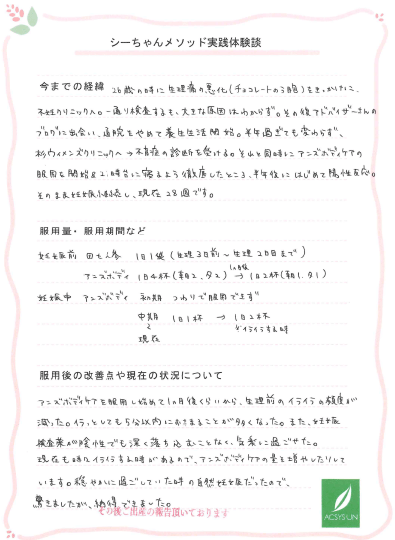 シーちゃんメソッド実践体験談
今までの経緯 26歳の時に生理痛の悪化(チョコレートのう胞)をきっかけに、
不妊クリニックへ。一通り検査するも、大きな原因はわからず。その後アドバイザーさんの
ブログに出会い、通院をやめて養生生活開始。半年過ぎても変わらず、
杉ウィメンズクリニックへ→不育症の診断を受ける。それと同時にアンズボディケアの
服用を開始&21時台に寝るよう徹底したところ、半年後にはじめて陽性反応。
そのまま妊娠継続し、現在28週です。
服用量・服用期間など
妊娠前 田七人参 1日1袋(生理3日前~生理2日目まで)
アンズボディ 1日4杯(朝2、夕2) 1ヶ月後→ 1日2杯(朝1、夕1)
妊娠中 アンズボディ 初期 つわりで服用できず
中期 1日1杯 → 1日2杯
〜 イライラする時
現在
服用後の改善点や現在の状況について
アンズボディケアを服用し始めて1ヶ月後くらいから、生理前のイライラの頻度が
減った。イラッとしても5分以内におさまることが多くなった。また、妊娠
検査薬が陰性でも深く落ち込むことなく、気楽に過ごせた。
現在も時々イライラする時があるので、アンズボディケアの量を増やしたりして
います。穏やかに過ごしていた時の自然妊娠だったので、
驚きましたが、納得できました。
その後ご出産の報告頂いております
ACSYS-LIN